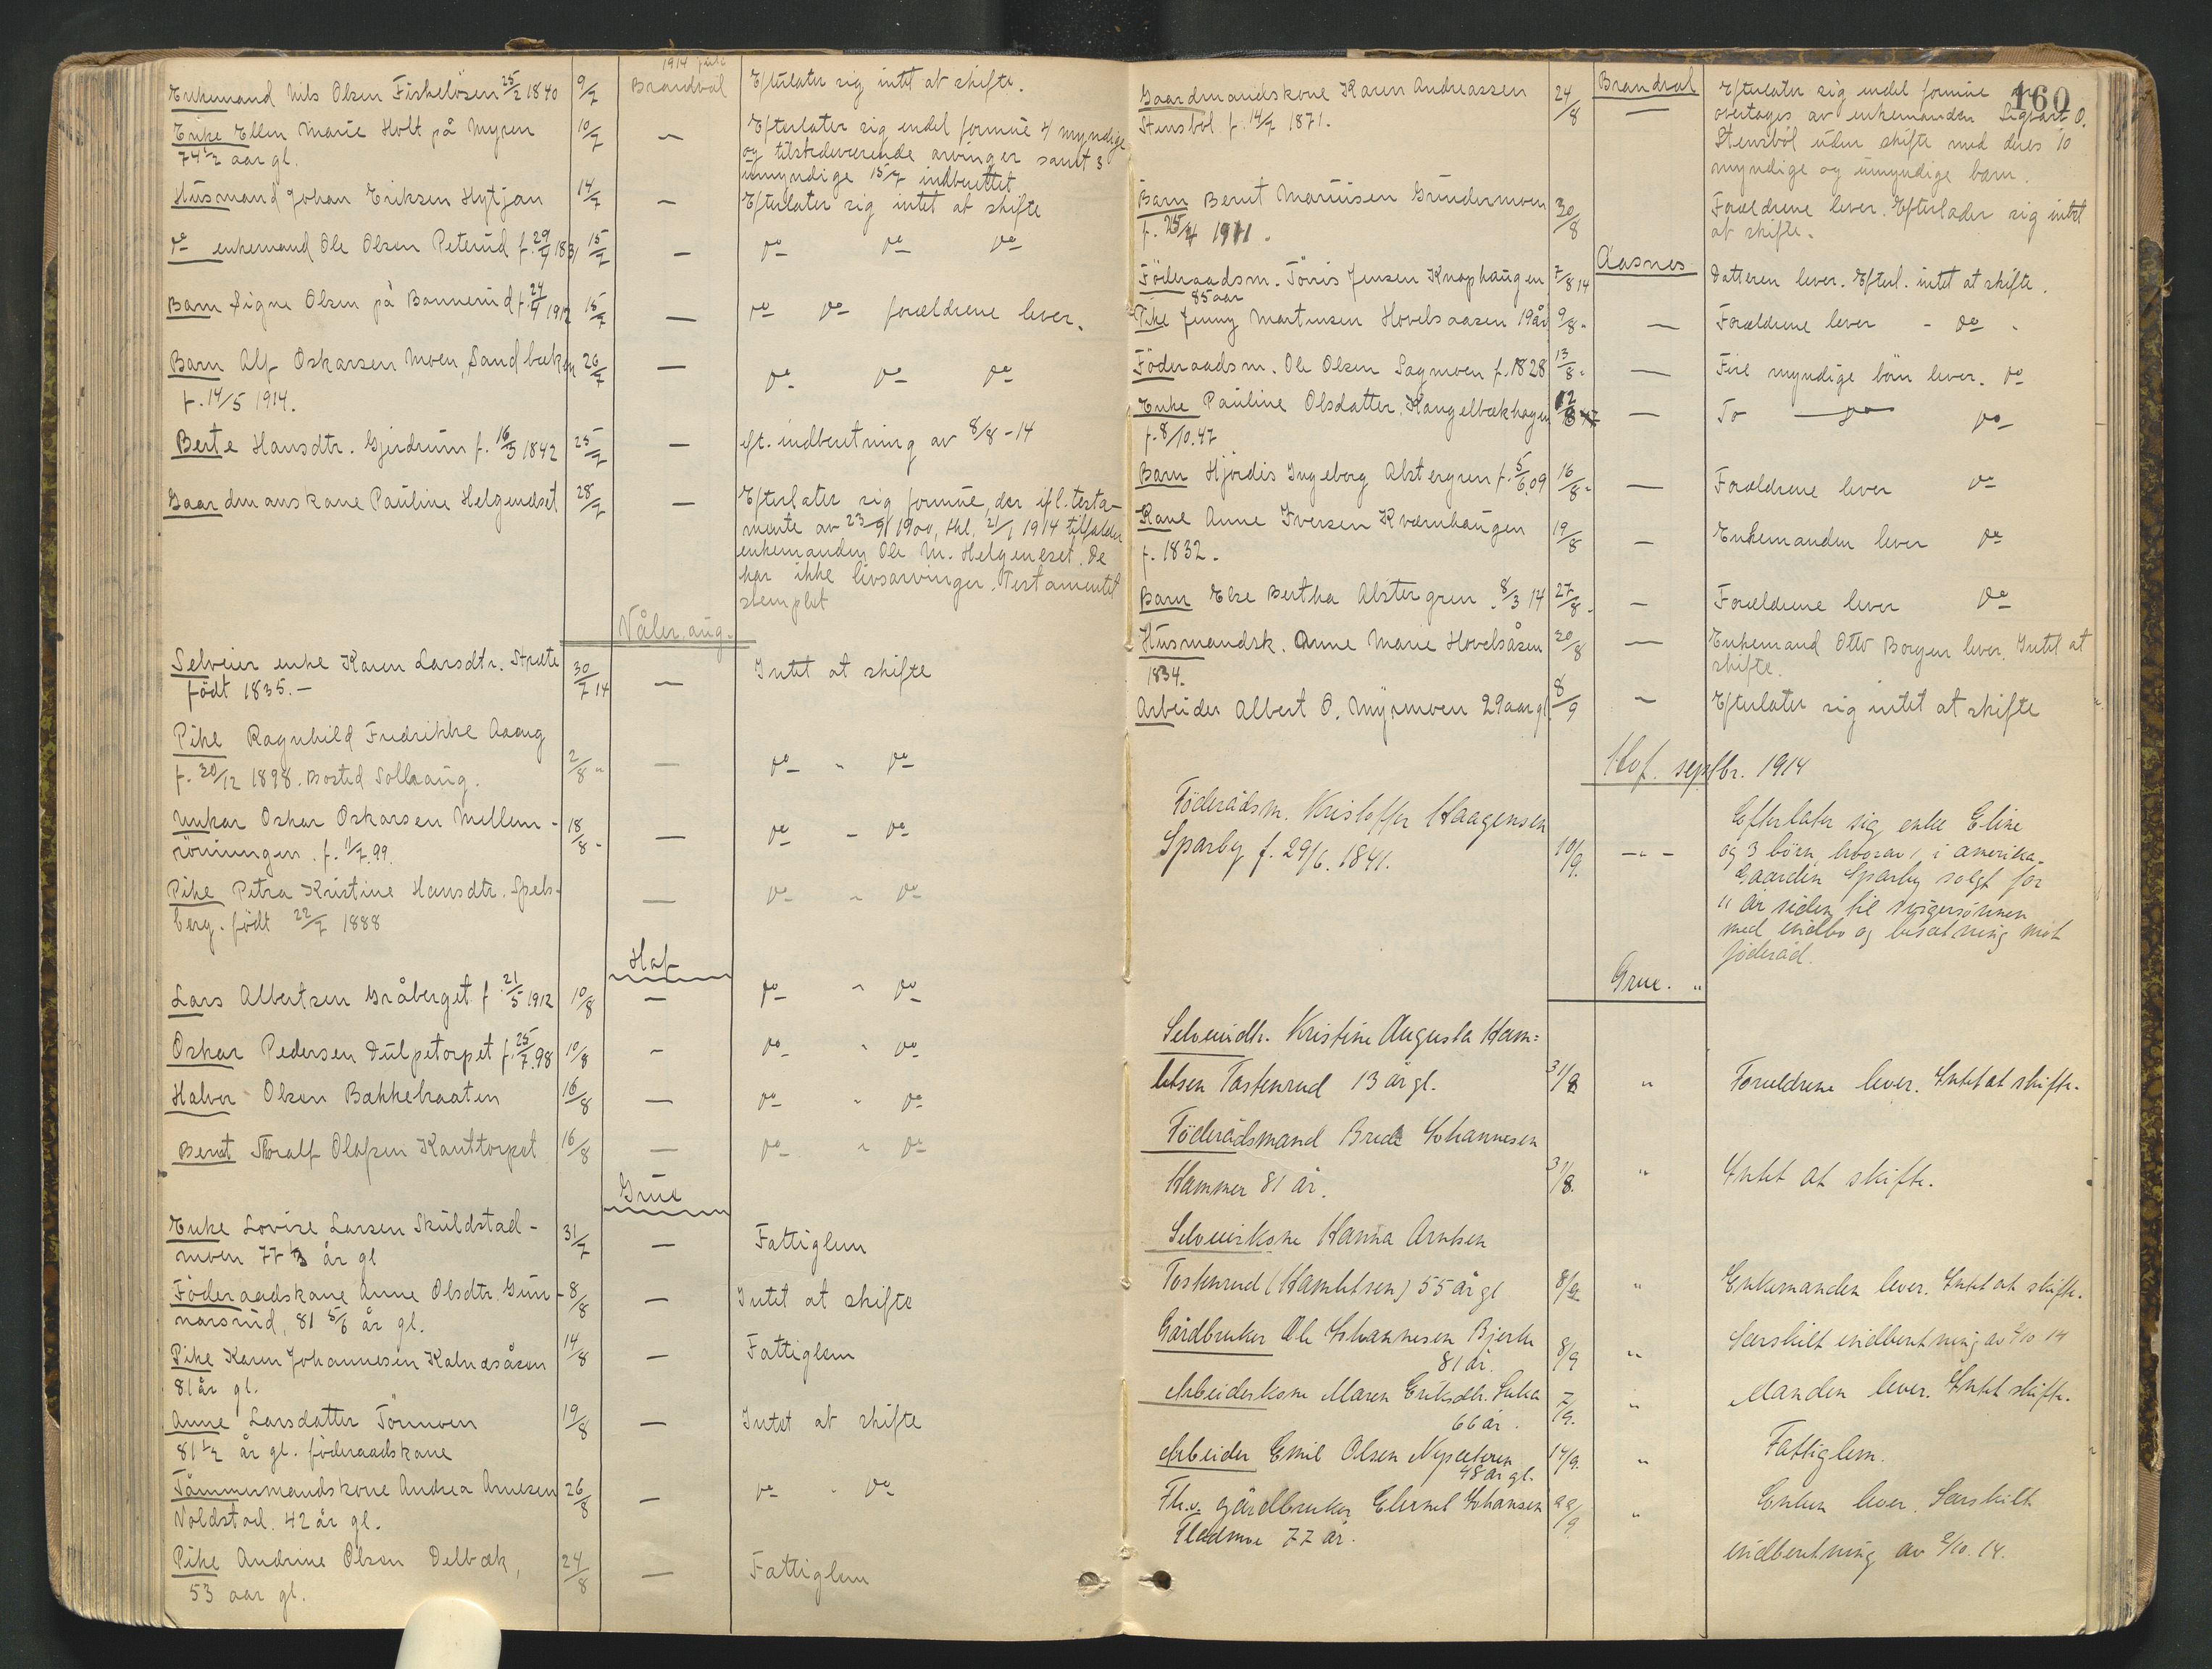 1914 juli
Enkemand Nils Olsen Fiskelösen 25/2 1840 9/7 Brandvål Efterlater sig intet at skifte.
Enke Ellen Marie Holt på Myren 10/7 — Efterlater sig endel formue 4 myndige
74 1/2 aar gl. og tilstedeværende arvinger samt 3
umyndige 15/7 indberettet
Husmand Johan Eriksen Hytjan 14/7 — Efterlater sig intet at skifte
do enkemand Ole Olsen Peterud f. 29/9 1831 15/7 — do do do
Barn Signe Olsen på Bannerud f. 24/4 1912 15/7 — do do forældrene lever.
Barn Alf Oskarsen Moen, Sandbækken 26/7 — do do do
f. 14/5 1914.
Berte Hansdtr. Gjerdrum f. 16/5 1842 25/7 — eft. indberetning av 8/8-14
Gaardmanskone Pauline Helgeneset 28/7 — Efterlater sig formue, der ifl. testa-
mente av 23/1 1900, tkl. 21/1 1914 tilfalder
enkemanden Ole M. Helgeneset. De
har ikke livsarvinger. Testamentet
stemplet
Våler, aug.
Selveier enke Karen Larsdtr. Stræte 30/7 14 — Intet at skifte
födt 1835.—
Pike Ragnhild Fredrikke Aaaug
f. 30/12 1898. Bosted Sollaaug. 2/8 " — do " do
Unkar Oskar Oskarsen Mellem- 18/8 - — do - do
röningen. f. 1/7.99.
Pike Petra Kristine Hansdtr. Spets- — do " do
berg. födt 22/7 1888
Hof
Lars Albertsen Gråberget f. 21/5 1912 10/8 — do " do
Oskar Pedersen Dulpetorpet f. 25/7.98 10/8 - do " do
Halvor Olsen Bakkebraaten 16/8 — do " do
Bernt Thoralf Olafsen Kanttorpet 16/8 — do " do
Grue
Enke Lovise Larsen Skuldstad- 31/7 — Fattiglem
moen 77 1/3 år gl
Föderaadskone Anne Olsdtr. Gun- 8/8 — Intet at skifte
narsrud, 81 5/6 år gl.
Pike Karen Johannesen Kalnesåsen 14/8 — Fattiglem
81 år gl.
Anne Larsdatter Törmoen 19/8 — Intet at skifte
81 1/2 år gl. föderaadskone
Tömmermandskone Andrea Arnesen 26/8 — do " do
Voldstad. 42 år gl.
Pike Andrine Olsen Delbæk, 24/8 — Fattiglem
53 aar gl.
160
Gaardmandskone Karen Andreassen 24/8 Brandval Efterlater sig endel formue som
Stensböl f. 14/7 1871. — overtages av enkemanden Sigvart O.
Stensböl uden skifte med deres 10
myndige og umyndige barn.
Barn Bernt Mariusen Grundermoen 30/8 Forældrene lever. Efterlader sig intet
f. 25/4 1911. at skifte.
Aasnes
Föderaadsm. Tönis Jensen Knaphaugen 7/8 14 Datteren lever. Efterl. intet at skifte.
85 aar
Pike Jenny Martinsen Hovelsaasen 19 år 9/8 - — Forældrene lever - do -
Föderaadsm. Ole Olsen Sagmoen f. 1828 13/8 - — Fire myndige börn lever. do
Enke Pauline Olsdatter, Kangelbækhagen 12/8 — To — do — do
f. 8/10.47
Barn Hjördis Ingeborg Alstergren f. 5/6.09 16/8 - — Forældrene lever do
Kone Anne Iversen Kværnhaugen 19/8 — Enkemanden lever do
f. 1832.
Barn Else Bertha Alstergren 8/3 14 27/8 - — Forældrene lever do
Husmandsk. Anne Marie Hovelsåsen 20/8 — Enkemand Otto Borgen lever. Intet at
1834. skifte.
Arbeider Albert O. Myrmoen 29 aar gl. 8/9 — Efterlater sig intet at skifte
Hof. septbr. 1914
Föderådsm. Kristoffer Haagensen Efterlater sig enke Eline
Sparby f. 29/6. 1841. 10/9. —"— og 3 börn, hvorav 1 i Amerika.
Gaarden Sparby solgt for
11 år siden til svigersönnen
med indbo og besætning mot
föderåd.
Grue. "
Selveierdtr. Kristine Augusta Ham=
letsen Tostenrud 13 år gl. 31/8 " Forældrene lever. Intet at skifte.
Föderådsmand Brede Johannesen
Hammer 81 år. 31/8. " Intet at skifte.
Selveierkone Hanna Arntsen
Tostenrud (Hamletsen) 55 år gl 8/9 " Enkemanden lever. Intet at skifte.
Gårdbruker Ole Johannesen Bjerke 8/9 " Særskilt indberetning av 2/10 14
81 år.
Arbeiderkone Maren Eriksdtr. Suka 7/9. " Manden lever. Intet skifte.
66 år.
Arbeider Emil Olsen Nysæteren 14/9. " Fattiglem.
48 år gl.
Fhv. gårdbruker Elernt Johansen 22/9 " Enken lever. Særskilt
Fladmoe 77 år. indberetning av 2/10. 14.